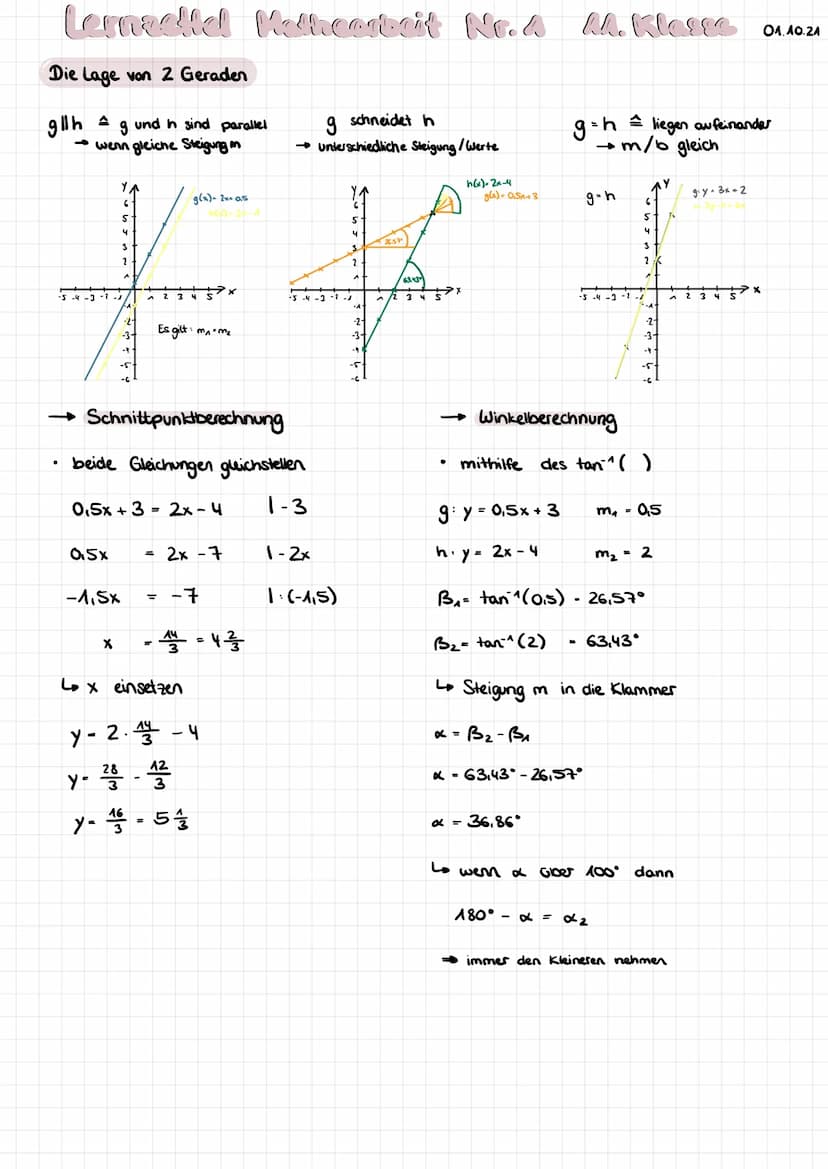 Lernzettel Mathearbeit Nr. 1 11. Klasse 01.10.21
Die Lage von 2 Geraden
g || h ≙ g und h sind parallel
→ wenn gleiche Steigung m
g schneidet h
→ unterschiedliche Steigung / Werte
g = h ≙ liegen aufeinander
→ m/b gleich
g(x) = 2x + 0,5
Es gilt: m₁ = m₂
h(x) = 2x - 4
g(x) = 0,5x + 3
g = h
g: y = 3x + 2
→ Schnittpunktberechnung
• beide Gleichungen gleichstellen
0,5x + 3 = 2x - 4 | - 3
0,5x = 2x - 7 | - 2x
-1,5x = -7 | : (-1,5)
x = 14/3 = 4 2/3
↳ x einsetzen
y = 2 · 14/3 - 4
y = 28/3 - 12/3
y = 16/3 = 5 1/3
→ Winkelberechnung
• mithilfe des tan⁻¹ ( )
g: y = 0,5x + 3 m₁ = 0,5
h: y = 2x - 4 m₂ = 2
β₁ = tan⁻¹(0,5) = 26,57°
β₂ = tan⁻¹(2) = 63,43°
↳ Steigung m in die Klammer
α = β₂ - β₁
α = 63,43° - 26,57°
α = 36,86°
↳ wenn α über 100° dann
180° - α = α₂
→ immer den kleineren nehmen